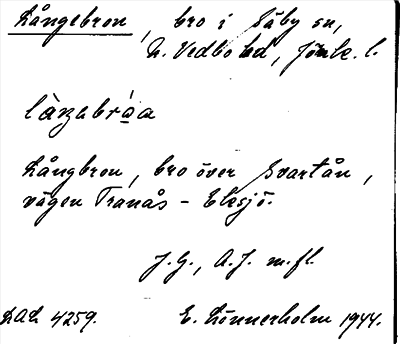 Långebron, bro i Säby sn,
N. Vedbo hd, Jönk. l.
Långbron, bro över Svartån,
vägen Tranås - Eksjö.
J.G., A.J. m.fl.
LAL 4259. E. Lönnerholm 1944.